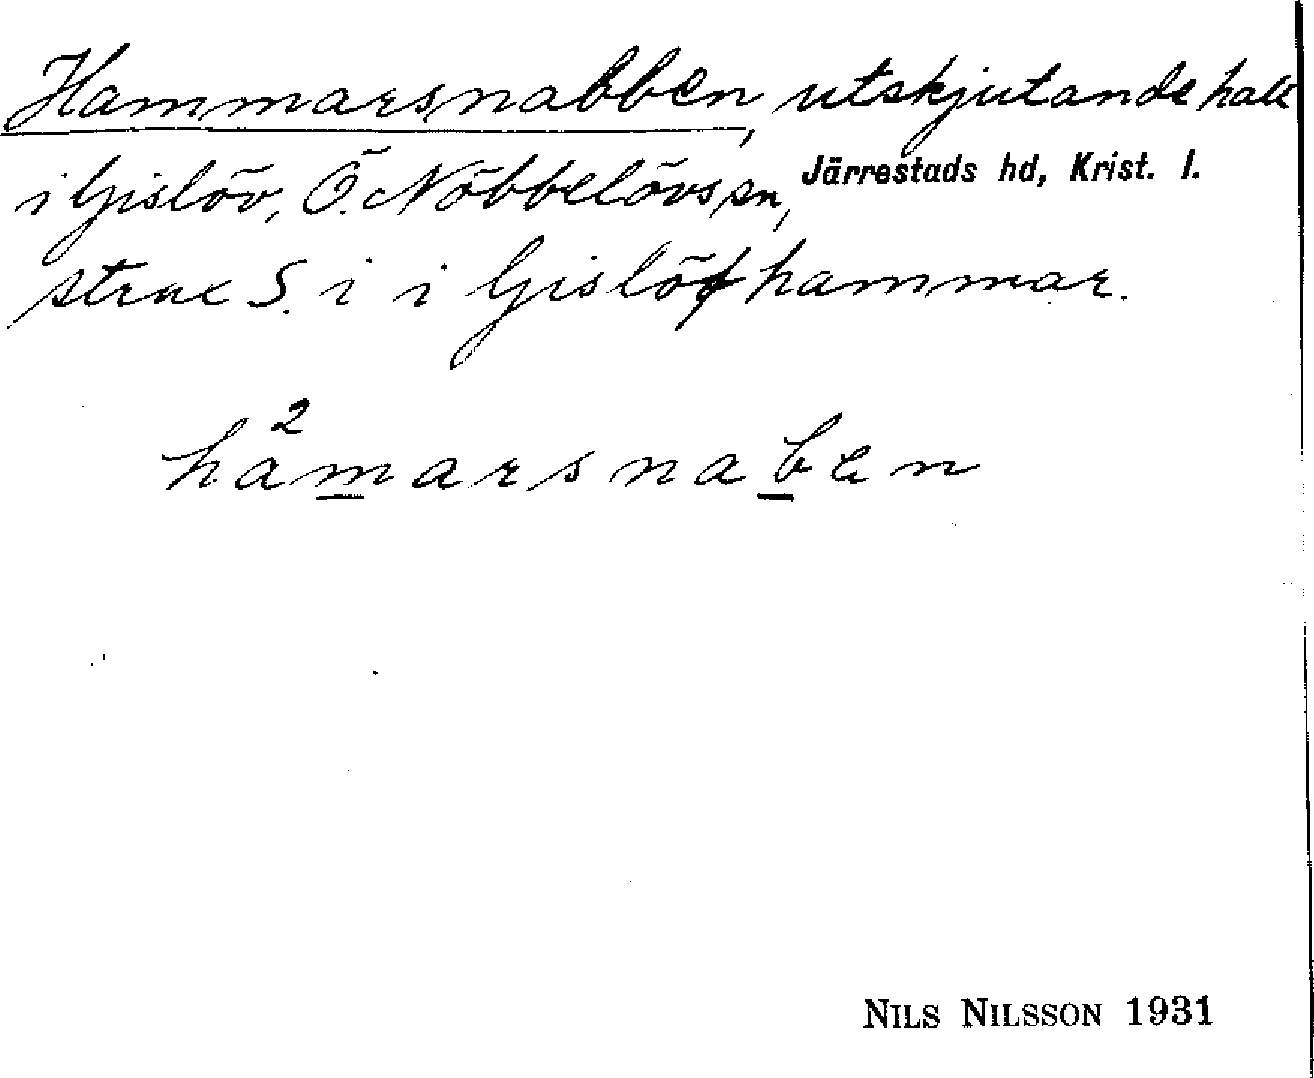 Hammarsnabben, utskjutande hall
i Gislöv, Ö. Nöbbelövs sn, Järrestads hd, Krist. l.
strax S. i i Gislöfhammar.
ha²marsnaben
NILS NILSSON 1931